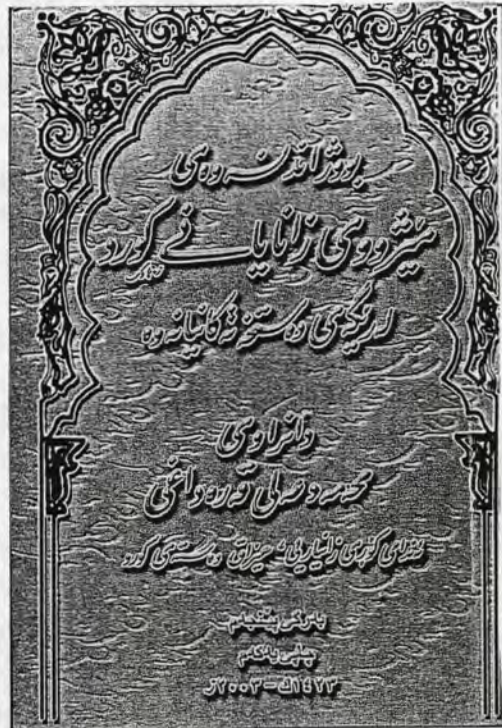 بووژاندنەوەی
مێژووی زانایانی کورد
لەڕێگەی دەستخەتەکانیانەوە
دانراوی
محەمەد عەلی قەرەداغی
کۆڕی زانیاریی عێراق دەستەی کورد
بەرگی پێنجەم
چاپی یەکەم
١٤٢٣ک - ٢٠٠٣ز